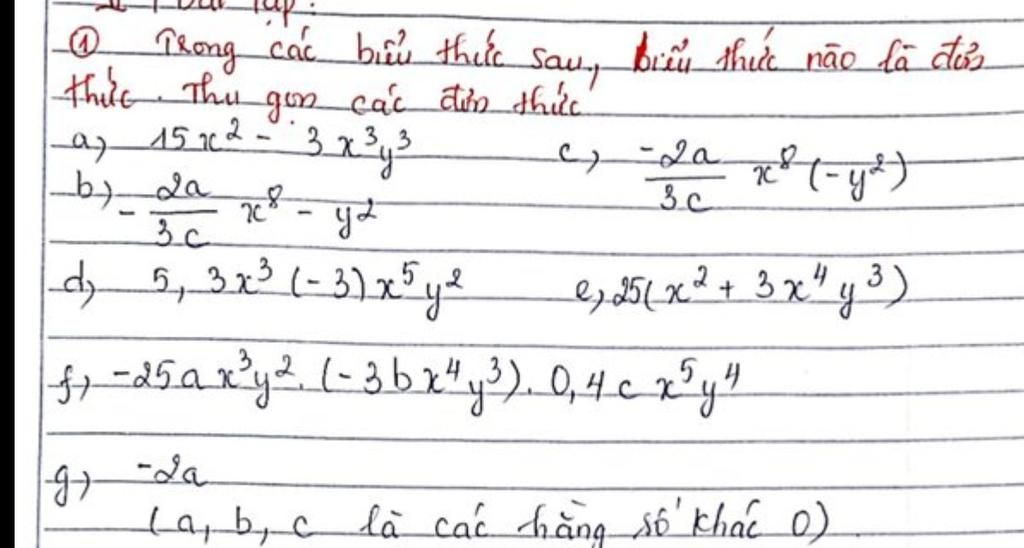 II Bài tập:
① Trong các biểu thức sau, biểu thức nào là đơn
thức. Thu gọn các đơn thức
a, 15x² - 3x³y³
c, -2a/3c x⁸(-y²)
b, -2a/3c x⁸ - y²
d, 5,3x³(-3)x⁵y²
e, 25(x² + 3x⁴y³)
f, -25ax³y².(-3bx⁴y³).0,4cx⁵y⁴
g, -2a
(a, b, c là các hằng số khác 0)